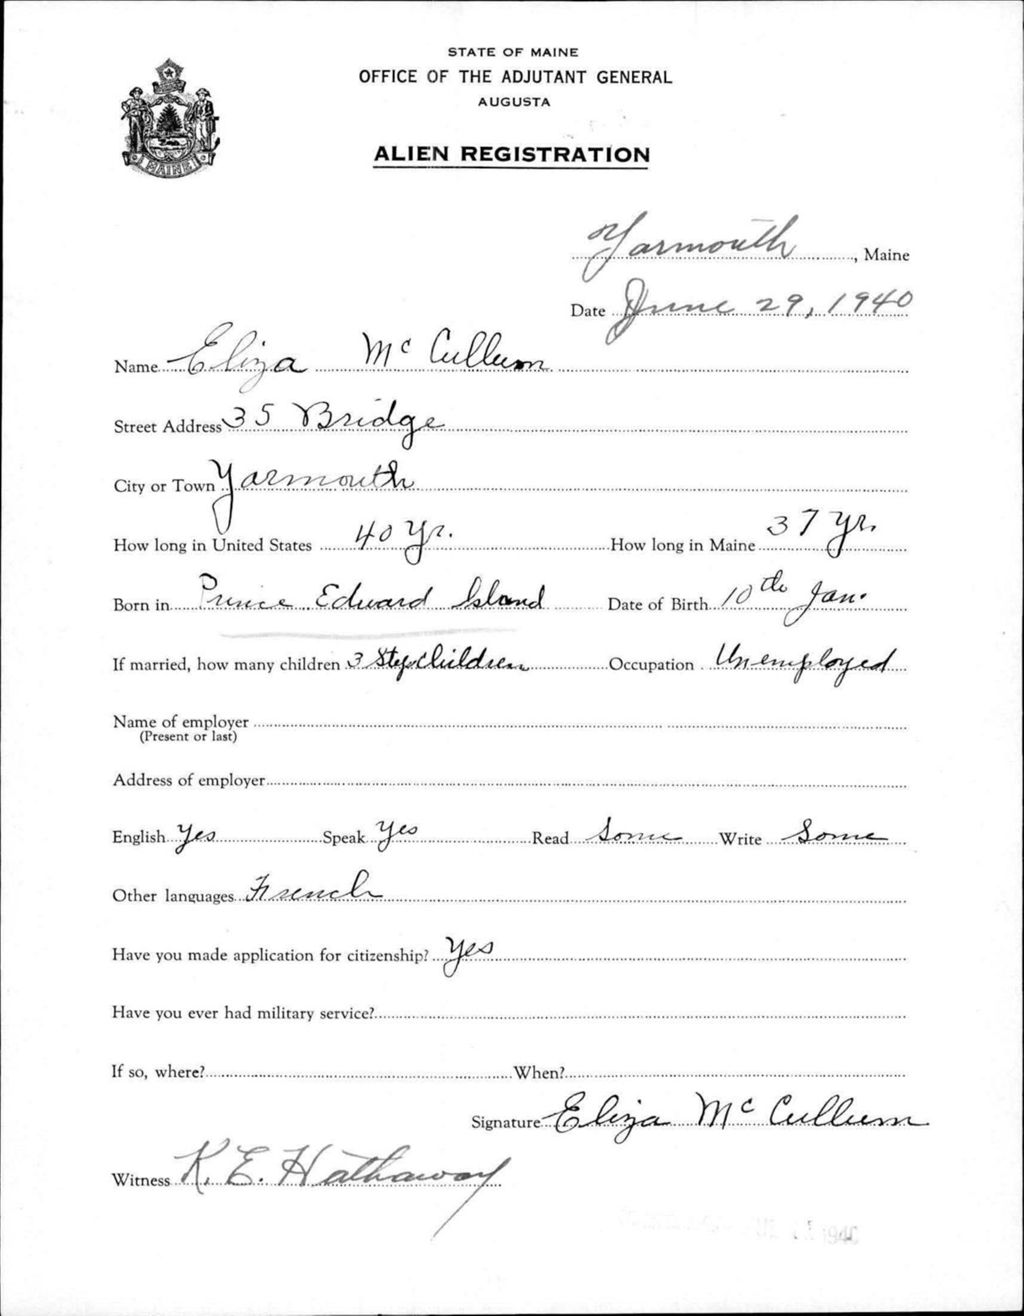 STATE OF MAINE
OFFICE OF THE ADJUTANT GENERAL
AUGUSTA
ALIEN REGISTRATION
MAINE
Yarmouth, Maine
Date June 29, 1940
Name Eliza McCullum
Street Address 35 Bridge
City or Town Yarmouth
How long in United States 40 Yr. How long in Maine 37 Yr.
Born in Prince Edward Island Date of Birth 10th Jan.
If married, how many children 3 Step Children Occupation Unemployed
Name of employer
(Present or last)
Address of employer
English Yes Speak Yes Read Some Write Some
Other languages French
Have you made application for citizenship? Yes
Have you ever had military service?
If so, where? When?
Signature Eliza McCullum
Witness K. E. Hathaway